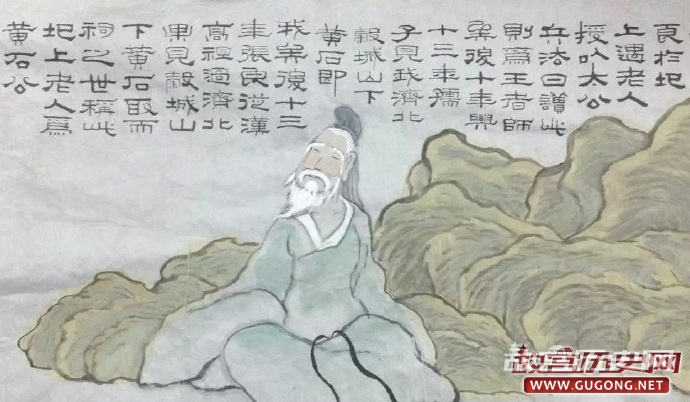 良於圯
上遇老人
授以大公
兵法曰讀此
則為王者師
矣後十年興
十三年孺
子見我濟北
穀城山下
黃石即
我矣後十三
年張良從漢
高祖過濟北
果見穀城山
下黃石取而
祠之世稱此
圯上老人為
黃石公
故宫历史网
WWW.GUGONG.NET